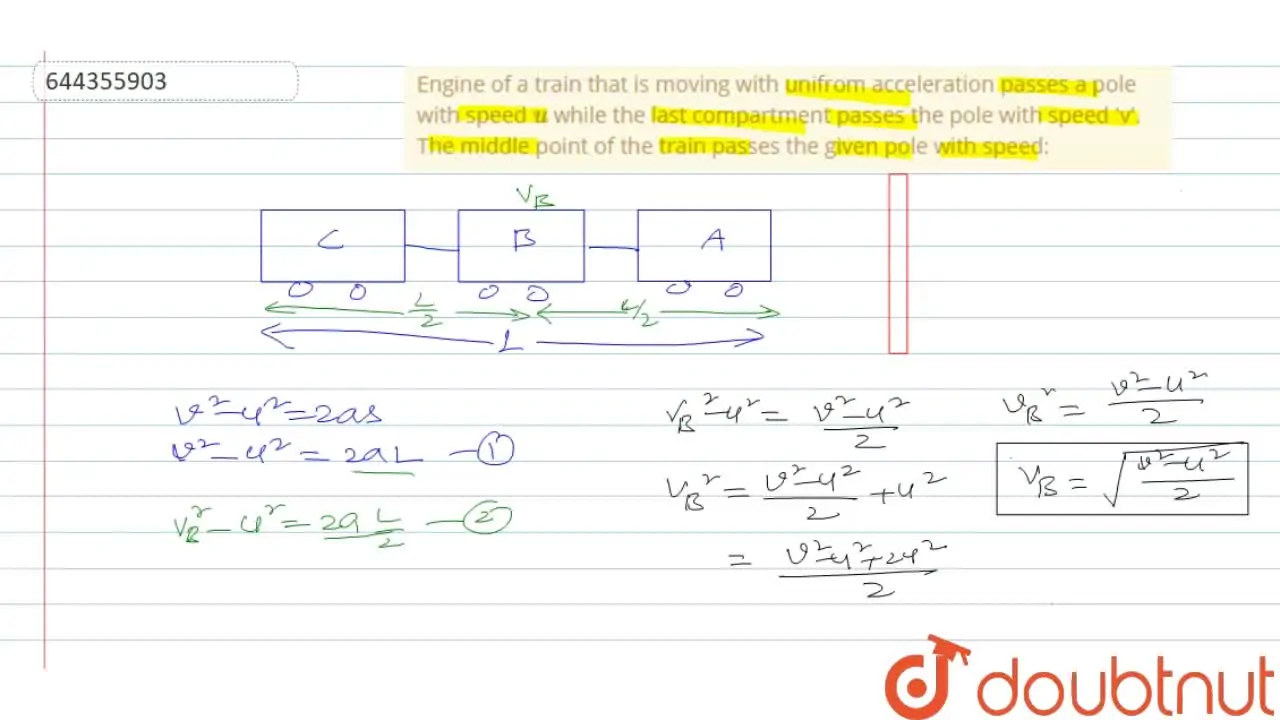 644355903
Engine of a train that is moving with unifrom acceleration passes a pole
with speed u while the last compartment passes the pole with speed 'v'.
The middle point of the train passes the given pole with speed:
V_B
C B A
L/2 L/2
L
v² - u² = 2as
v² - u² = 2aL - ①
V_B² - u² = 2a L/2 - ②
V_B² - u² = (v² - u²)/2
V_B² = (v² - u²)/2 + u²
= (v² - u² + 2u²)/2
V_B² = (v² - u²)/2
V_B = √((v² - u²)/2)
doubtnut